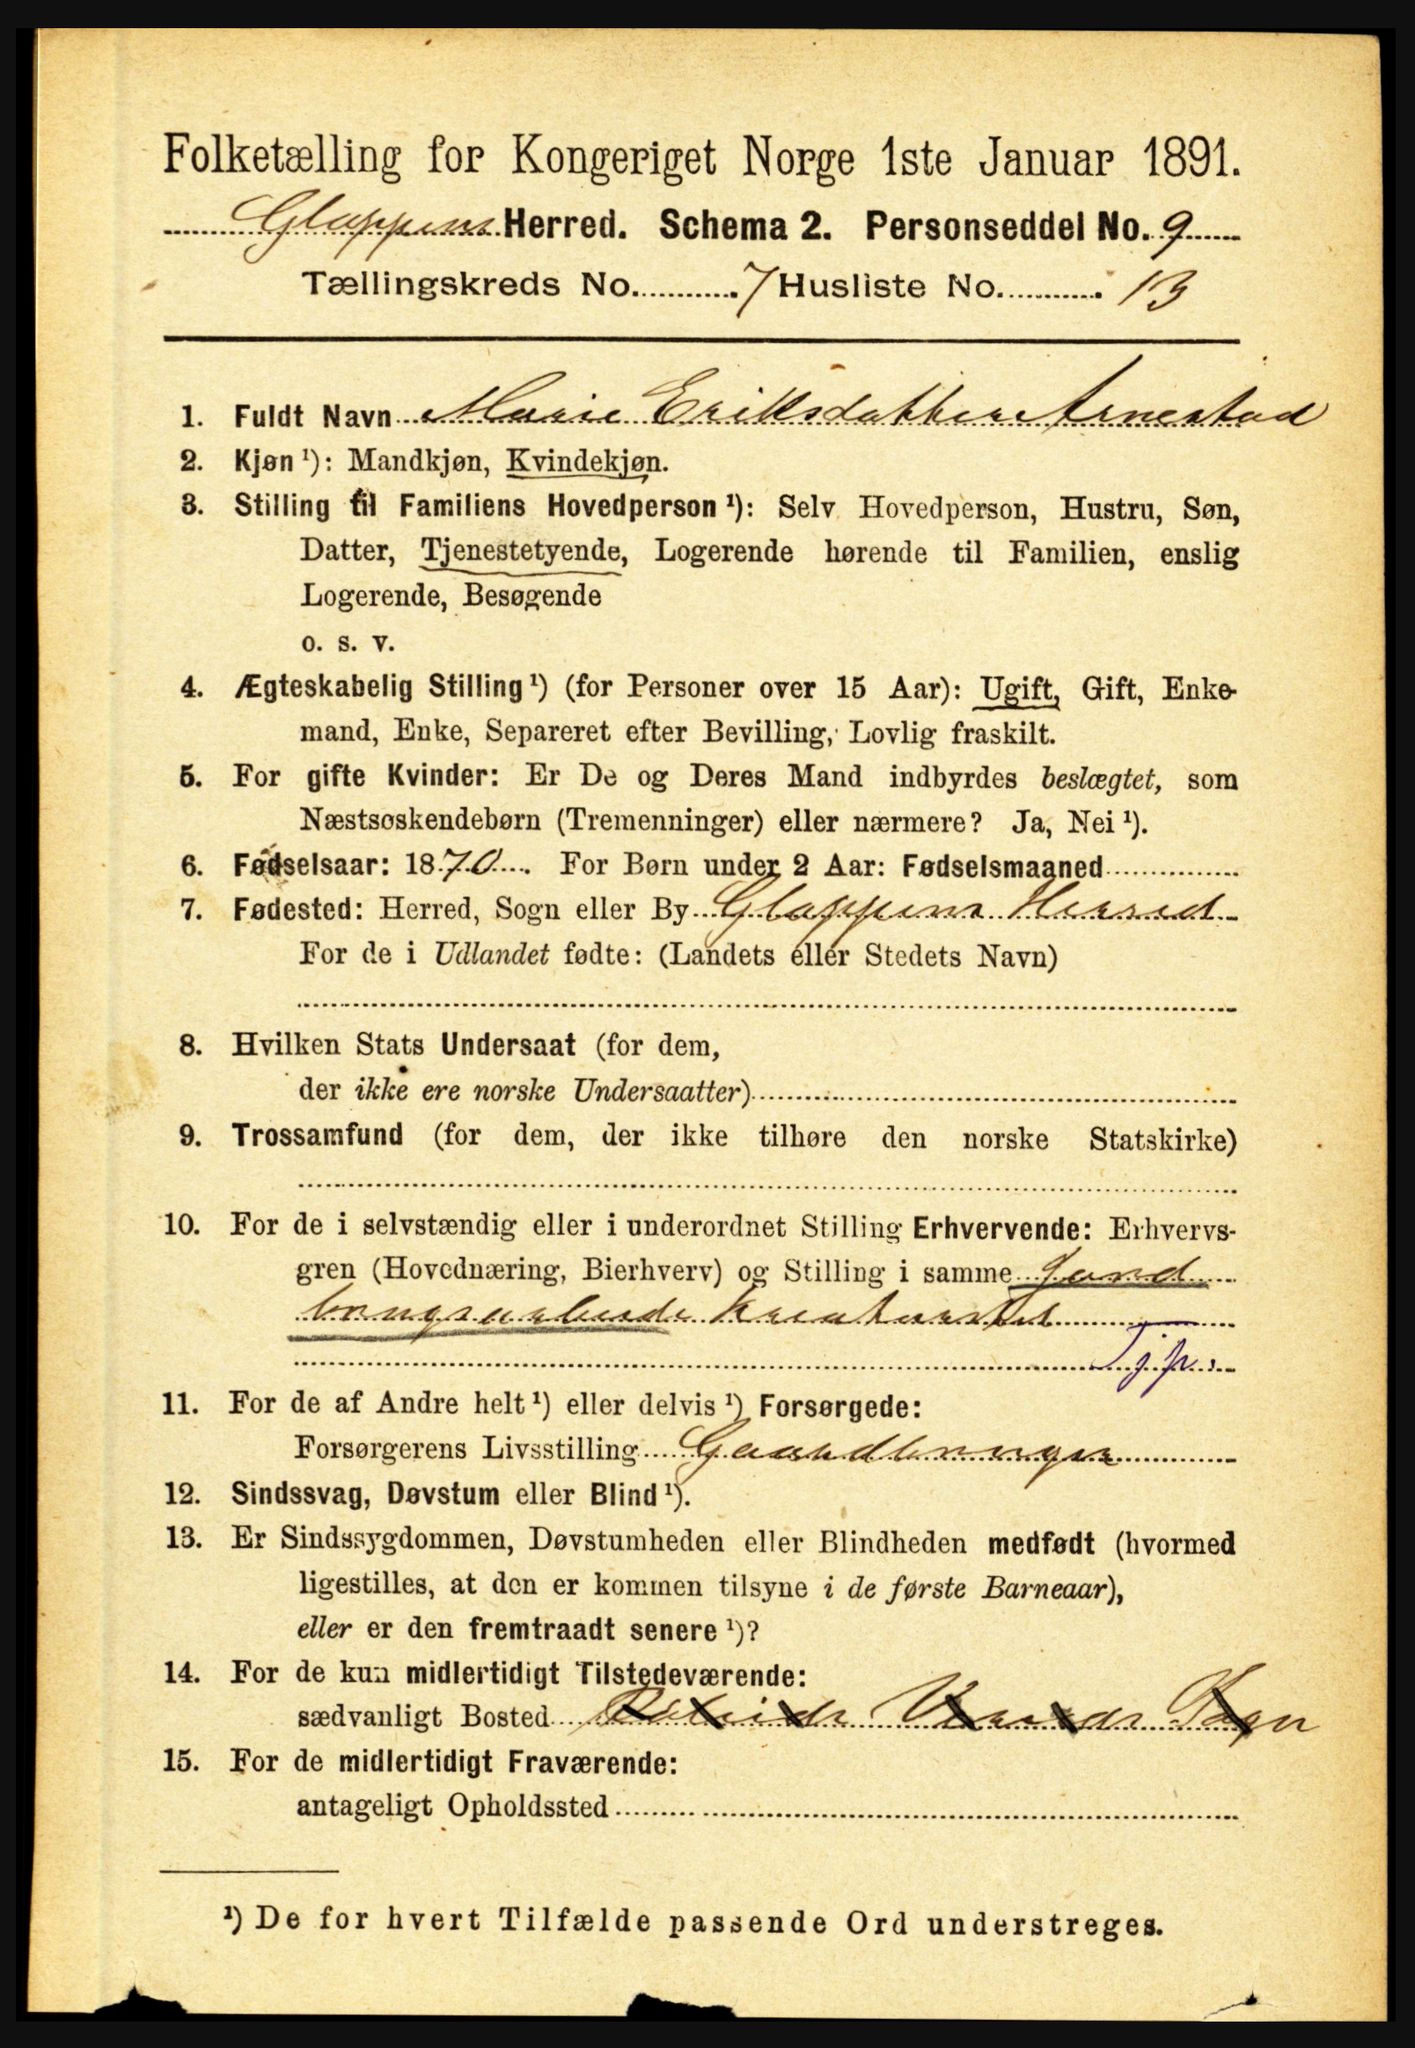 Folketælling for Kongeriget Norge 1ste Januar 1891.
Gloppens Herred. Schema 2. Personseddel No. 9
Tællingskreds No. 7 Husliste No. 13
1. Fuldt Navn Marie Eriksdatter Arnestad
2. Kjøn ¹): Mandkjøn, Kvindekjøn.
3. Stilling til Familiens Hovedperson ¹): Selv Hovedperson, Hustru, Søn,
Datter, Tjenestetyende, Logerende hørende til Familien, enslig
Logerende, Besøgende
o. s. v.
4. Ægteskabelig Stilling ¹) (for Personer over 15 Aar): Ugift, Gift, Enke-
mand, Enke, Separeret efter Bevilling, Lovlig fraskilt.
5. For gifte Kvinder: Er De og Deres Mand indbyrdes beslægtet, som
Næstsøskendebørn (Tremenninger) eller nærmere? Ja, Nei ¹).
6. Fødselsaar: 1870. For Børn under 2 Aar: Fødselsmaaned
7. Fødested: Herred, Sogn eller By Gloppens Herred
For de i Udlandet fødte: (Landets eller Stedets Navn)
8. Hvilken Stats Undersaat (for dem,
der ikke ere norske Undersaatter)
9. Trossamfund (for dem, der ikke tilhøre den norske Statskirke)
10. For de i selvstændig eller i underordnet Stilling Erhvervende: Erhvervs-
gren (Hovednæring, Bierhverv) og Stilling i samme Jord
brugsarbeide Kreaturstel
Tjp.
11. For de af Andre helt ¹) eller delvis ¹) Forsørgede:
Forsørgerens Livsstilling Gaardbruger
12. Sindssvag, Døvstum eller Blind ¹).
13. Er Sindssygdommen, Døvstumheden eller Blindheden medfødt (hvormed
ligestilles, at den er kommen tilsyne i de første Barneaar),
eller er den fremtraadt senere ¹)?
14. For de kun midlertidigt Tilstedeværende:
sædvanligt Bosted Sogn
15. For de midlertidigt Fraværende:
antageligt Opholdssted
¹) De for hvert Tilfælde passende Ord understreges.